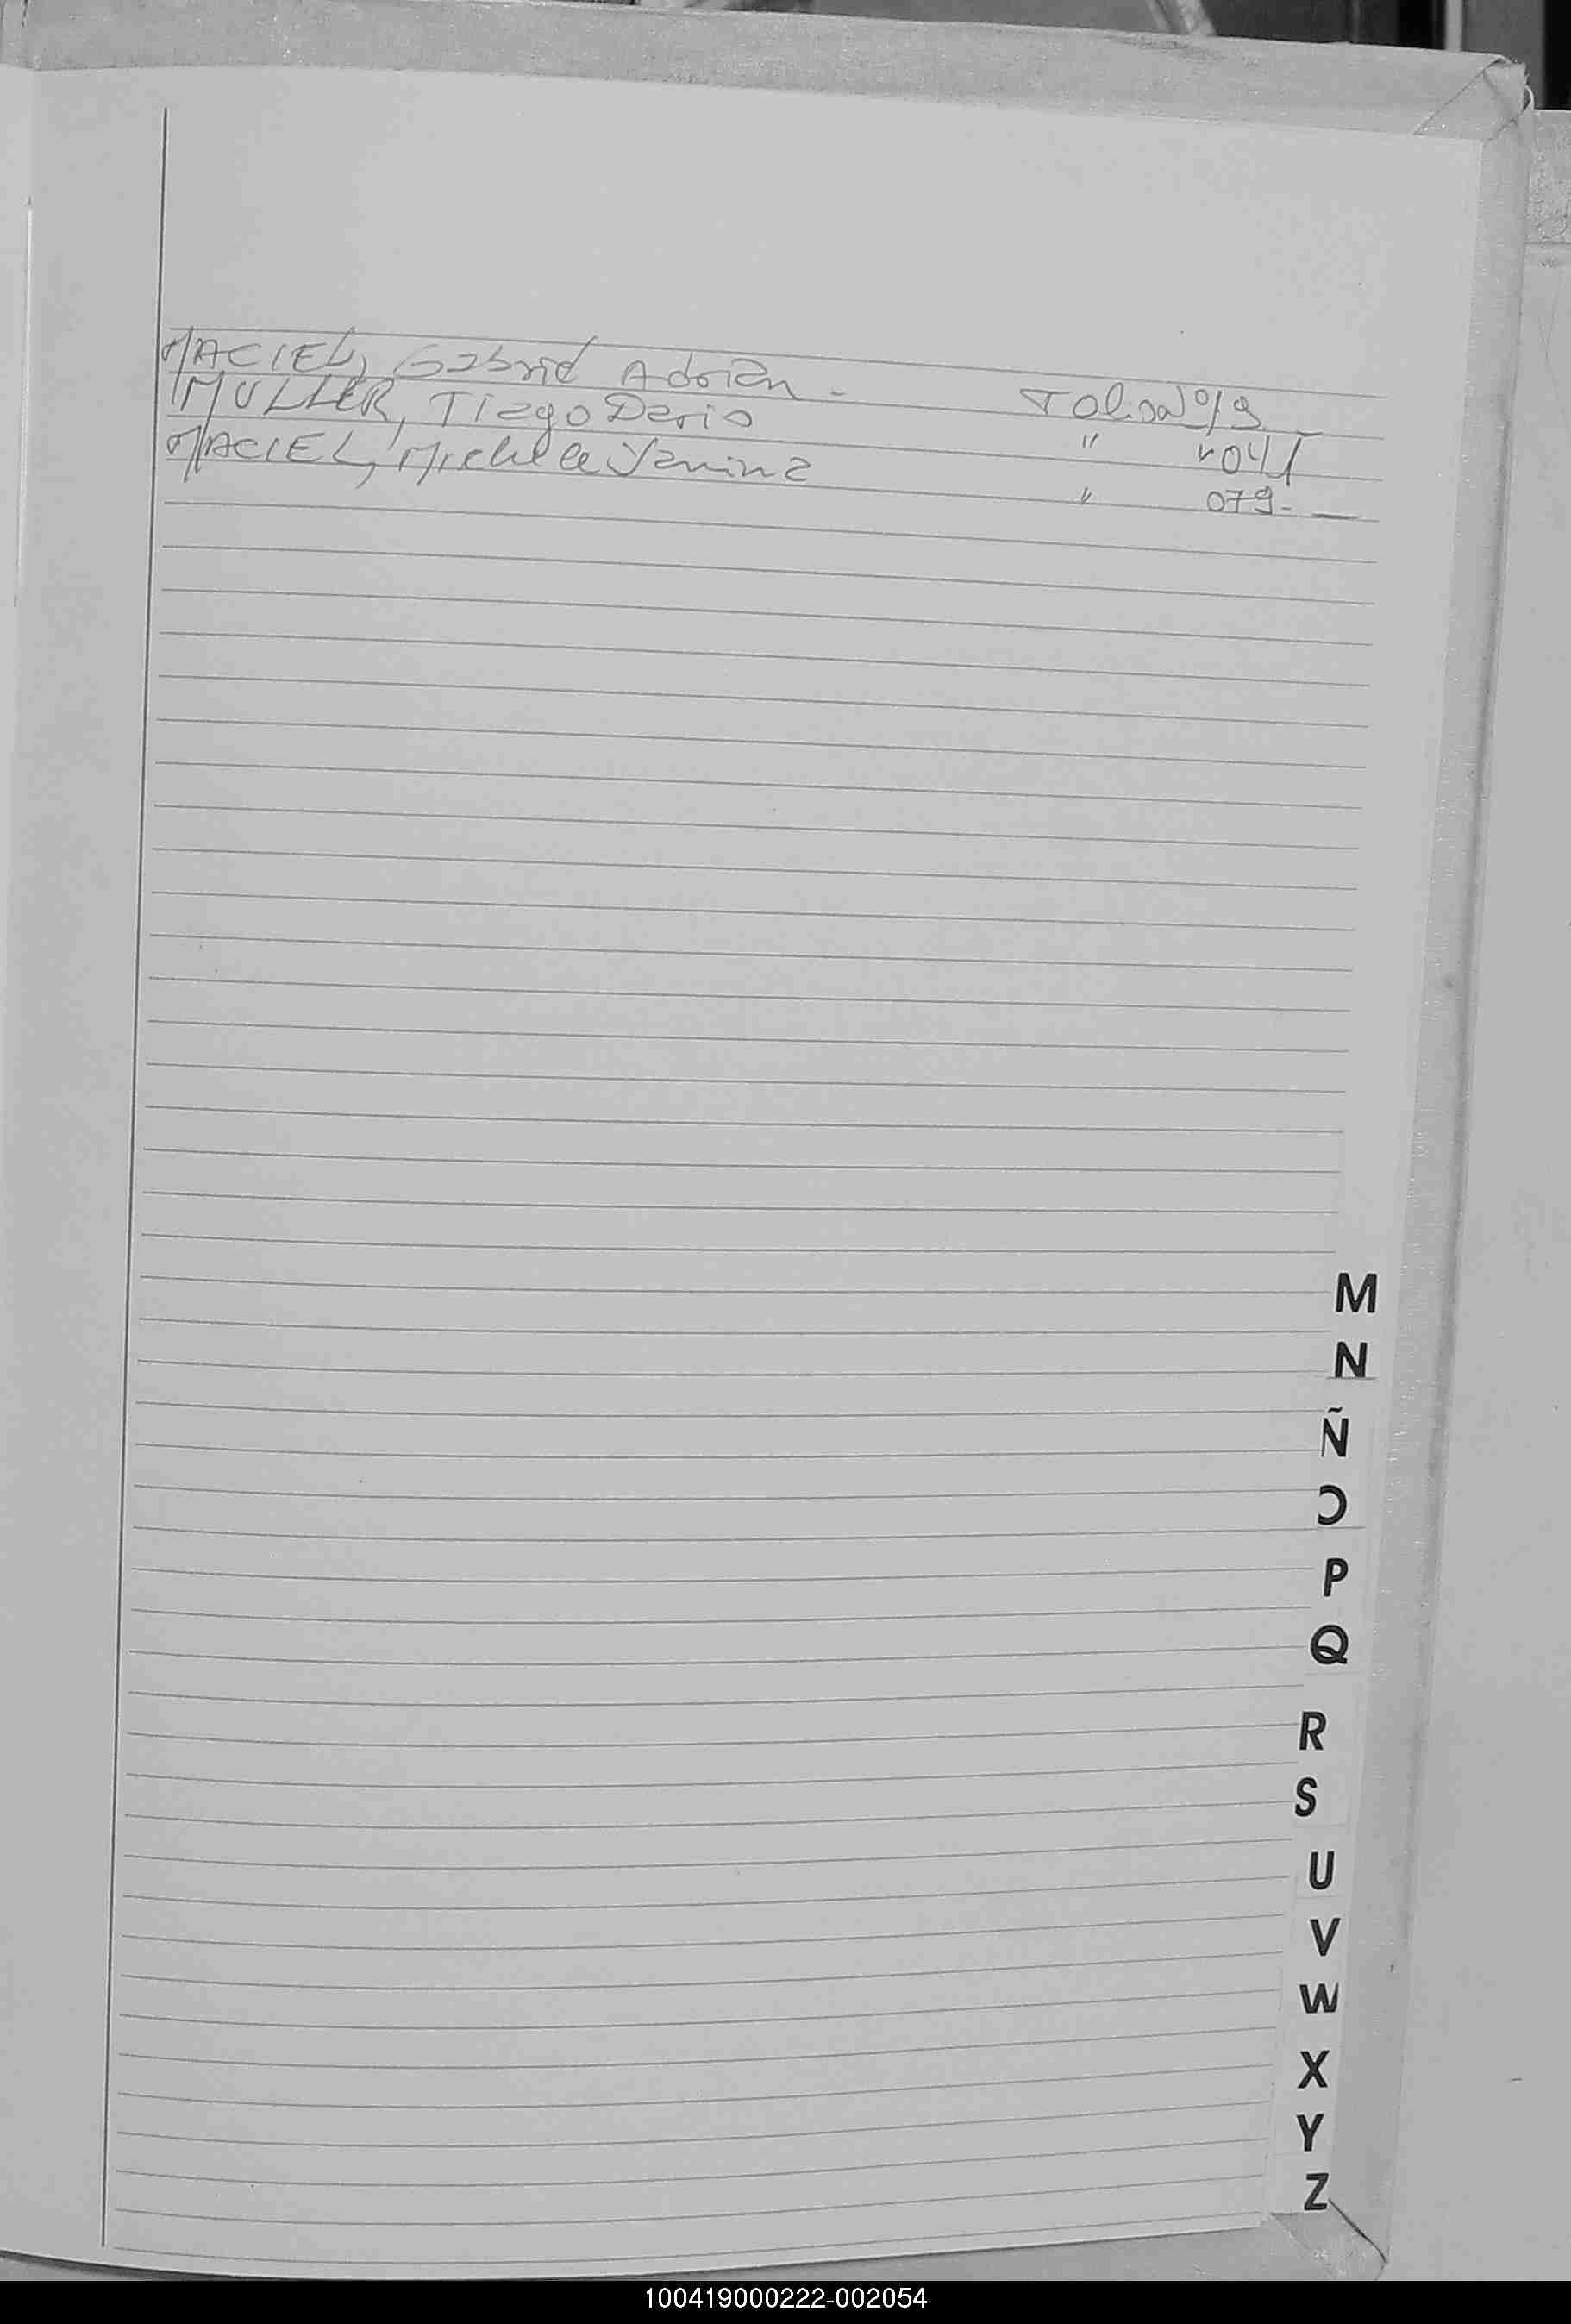 MACIEL, Gabriel Adrián -
MULLER, Tiago Dario
MACIEL, Michelle Yanina
Folio Nº
"
" 079-
M
N
Ñ
O
P
Q
R
S
U
V
W
X
Y
Z
100419000222-002054